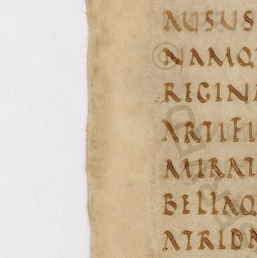 AUSUS
NAMQ
REGINA
ARTIFI
MIRAT
BELLAQ
ATRIDA